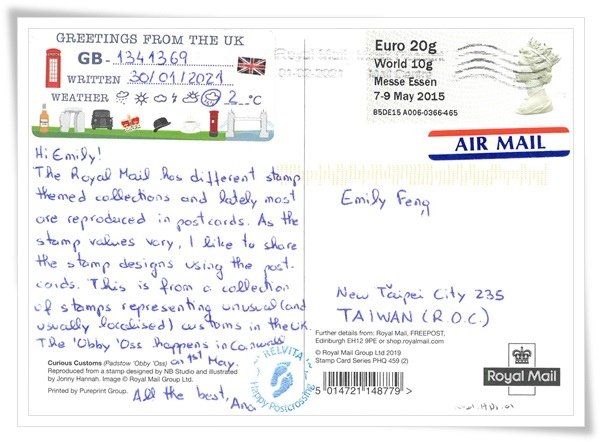 GREETINGS FROM THE UK
GB - 1341369
WRITTEN 30/01/2021
WEATHER 2 °C
Hi Emily!
The Royal Mail has different stamp
themed collections and lately most
are reproduced in postcards. As the
stamp values vary, I like to share
the stamp designs using the post-
cards. This is from a collection
of stamps representing unusual (and
usually localised) customs in the UK.
The 'Obby 'Oss happens in Cornwall
on 1st May.
All the best, Ana
Curious Customs (Padstow 'Obby 'Oss)
Reproduced from a stamp designed by NB Studio and illustrated
by Jonny Hannah. Image © Royal Mail Group Ltd.
Printed by Pureprint Group.
HELVITA
Happy Postcrossing
Royal Mail
01-02-2021
Euro 20g
World 10g
Messe Essen
7-9 May 2015
B5DE15 A006-0366-465
AIR MAIL
Emily Feng
New Taipei City 235
TAIWAN (R.O.C)
Further details from: Royal Mail, FREEPOST,
Edinburgh EH12 9PE or shop.royalmail.com
© Royal Mail Group Ltd 2019
Stamp Card Series PHQ 459 (2)
5 014721 148779 >
Royal Mail